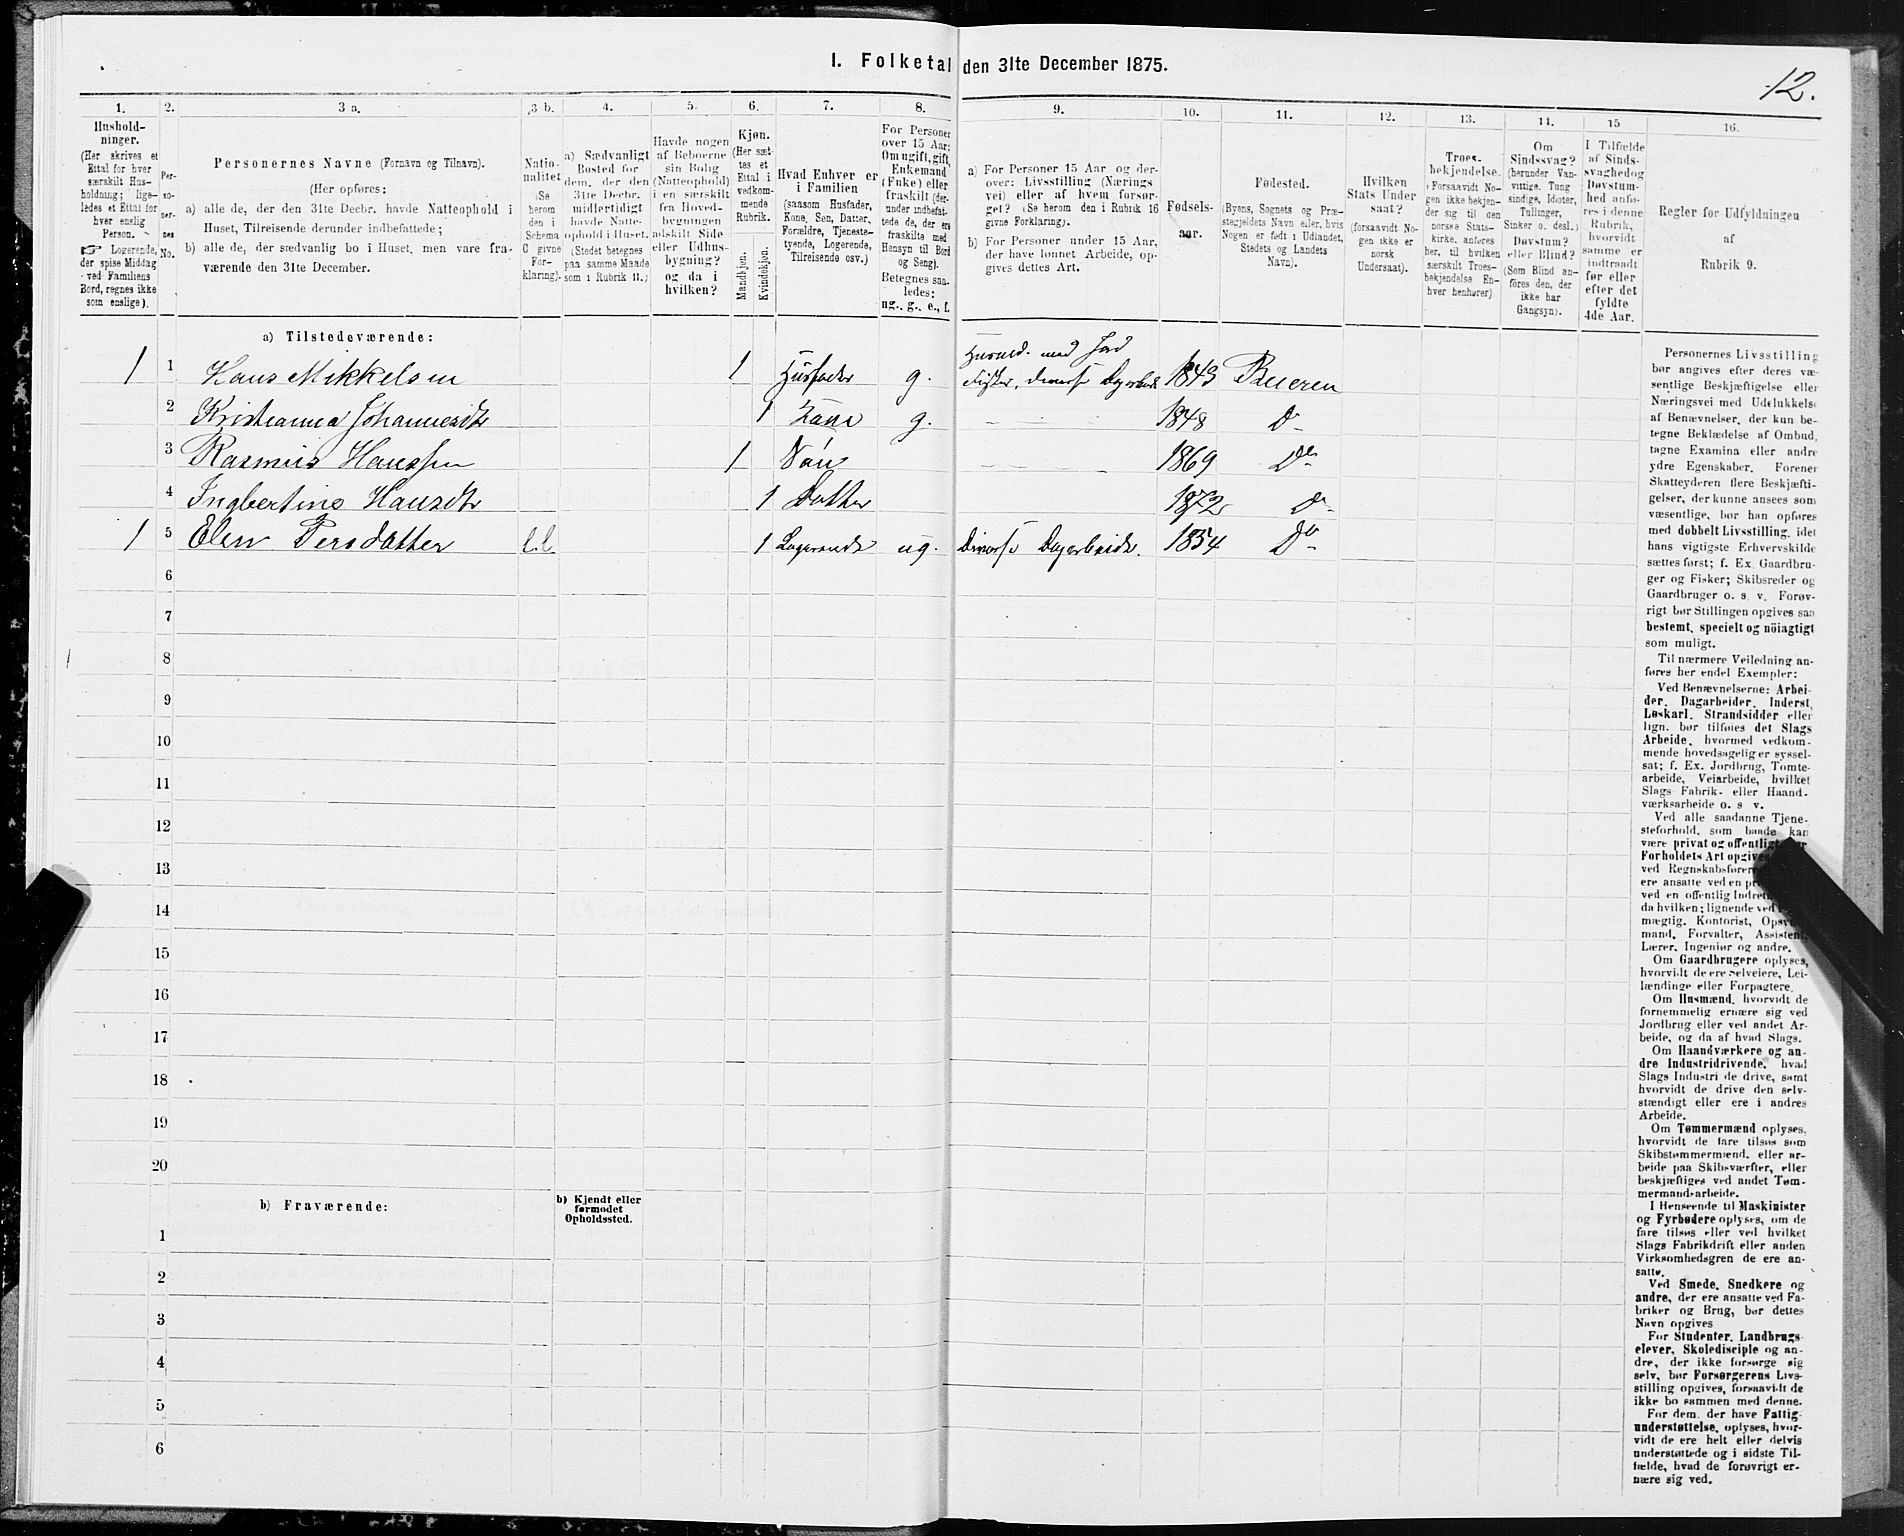 I. Folketal den 31te December 1875.
12.
1.
Hushold-
ninger.
(Her skrives et
Ettal for hver
særskilt Hus-
holdning; lige-
ledes et Ettal for
hver enslig
Person.
☞ Logerende,
der spise Middag
ved Familiens
Bord, regnes ikke
som enslige).
2.
Per-
so-
ner-
nes
No.
3 a.
Personernes Navne (Fornavn og Tilnavn).
(Her opføres:
a) alle de, der den 31te Decbr. havde Natteophold i
Huset, Tilreisende derunder indbefattede;
b) alle de, der sædvanlig bo i Huset, men vare fra-
værende den 31te December.
3 b.
Natio-
nalitet
(Se
herom
den i
Schema
C givne
For-
klaring).
4.
a) Sædvanligt
Bosted for
dem, der den
31te Decbr.
midlertidigt
havde Natte-
ophold i Huset.
(Stedet betegnes
paa samme Maade
som i Rubrik 11.)
5.
Havde nogen
af Beboerne
sin Bolig
(Natteophold)
i en særskilt
fra Hoved-
bygningen
adskilt Side
eller Udhus-
bygning?
og da i
hvilken?
6.
Kjøn.
(Her sæt-
tes et
Ettal i
vedkom-
mende
Rubrik.
Mandkjøn.
Kvindekjøn.
7.
Hvad Enhver er
i Familien
(saasom Husfader,
Kone, Søn, Datter,
Forældre, Tjeneste-
tyende, Logerende,
Tilreisende osv.)
8.
For Personer
over 15 Aar:
Om ugift, gift,
Enkemand
(Enke) eller
fraskilt (der-
under indbefat-
tede de, der ere
fraskilte med
Hensyn til Bord
og Seng).
Betegnes saa-
ledes:
ug., g., e., f.
9.
a) For Personer 15 Aar og der-
over: Livsstilling (Nærings
vei) eller af hvem forsør-
get? (Se herom den i Rubrik 16
givne Forklaring).
b) For Personer under 15 Aar,
der have lønnet Arbeide, op-
gives dettes Art.
10.
Fødsels-
aar.
11.
Fødested.
(Byens, Sognets og Præ-
stegjeldets Navn eller, hvis
Nogen er født i Udlandet,
Stedets og Landets
Navn).
12.
Hvilken
Stats Under
saat?
(forsaavidt No-
gen ikke er
norsk
Undersaat).
13.
Troes-
bekjendelse.
(Forsaavidt No-
gen ikke bekjen-
der sig til den
norske Stats-
kirke, anføres
her, til hvilken
særskilt Troes-
bekjendelse En-
hver henhører)
14.
Om
Sindssvag?
(herunder Van-
vittige, Tung
sindige, Idioter,
Tullinger,
Sinker o. desl.)
Døvstum?
eller Blind?
(Som Blind an-
føres den, der
ikke har
Gangsyn).
15
I Tilfælde
af Sinds-
svaghed og
Døvstum-
hed anfø-
res i denne
Rubrik,
hvorvidt
samme er
indtraadt
før eller
efter det
fyldte
4de Aar.
16.
Regler for Udfyldningen
af
Rubrik 9.
a) Tilstedeværende:
1 1 Hans Mikkelsen 1 Husfader g. Husmd. med Jord
Fisker, diverse Dagarbeide 1843 Beieren
2 Kristianna Johannesdtr 1 Kone g. — — — 1848 Do
3 Rasmus Hanssen 1 Søn — — — 1869 Do
4 Ingbertine Hansdtr 1 Datter 1872 Do
1 5 Elen Persdatter 1 Logerende ug. Diverse Dagarbeide. 1854 Do
6
7
8
9
10
11
12
13
14
15
16
17
18
19
20
b) Fraværende:
b) Kjendt eller
formodet
Opholdssted.
1
2
3
4
5
6
Personernes Livsstilling
bør angives efter deres væ-
sentlige Beskjæftigelse eller
Næringsvei med Udelukkelse
af Benævnelser, der kun be-
tegne Beklædelse af Ombud,
tagne Examina eller andre
ydre Egenskaber. Forener
Skatteyderen flere Beskjæfti-
gelser, der kunne ansees som
væsentlige, bør han opføres
med dobbelt Livsstilling, idet
hans vigtigste Erhvervskilde
sættes først; f. Ex. Gaardbru-
ger og Fisker; Skibsreder og
Gaardbruger o. s. v. Forøv-
rigt bør Stillingen opgives saa
bestemt, specielt og nöiagtigt
som muligt.
Til nærmere Veiledning an-
føres her endel Exempler:
Ved Benævnelserne: Arbei-
der, Dagarbeider, Inderst,
Løskarl, Strandsidder eller
lign. bør tilføies det Slags
Arbeide, hvormed vedkom-
mende hovedsagelig er syssel-
sat; f. Ex. Jordbrug, Tomte-
arbeide, Veiarbeide, hvilket
Slags Fabrik- eller Haand-
værksarbeide o. s v.
Ved alle saadanne Tjene-
steforhold, som baade kan
være privat og offentligt,
Forholdets Art opgives
ved Regnskabsfører
ere ansatte ved en
ved en offentlig
da hvilken; lignende ved
mægtig, Kontorist,
mand, Forvalter, Assistent,
Lærer, Ingeniør og andre.
Om Gaardbrugere oplyses,
hvorvidt de ere Selveiere, Lei-
lændinge eller Forpagtere.
Om Husmænd, hvorvidt de
fornemmelig ernære sig ved
Jordbrug eller ved andet Ar-
beide, og da af hvad Slags.
Om Haandværkere og an-
dre Industridrivende, hvad
Slags Industri de drive, samt
hvorvidt de drive den selv-
stændigt eller ere i andres
Arbeide.
Om Tømmermænd oplyses,
hvorvidt de fare tilsøs som
Skibstømmermænd, eller ar-
beide paa Skibsværfter, eller
beskjæftiges ved andet Tøm-
mermandsarbeide.
I Henseende til Maskinister
og Fyrbødere oplyses, om de
fare tilsøs eller ved hvilket
Slags Fabrikdrift eller anden
Virksomhedsgren de ere an-
satte.
Ved Smede, Snedkere og
andre, der ere ansatte ved Fa-
briker og Brug, bør dettes
Navn opgives
For Studenter, Landbrugs-
elever, Skoledisciple og an-
dre, der ikke forsørge sig
selv, bør Forsørgerens Livs-
stilling opgives, forsaavidt de
ikke bo sammen med denne.
For dem, der have Fattig-
understøttelse, oplyses, hvor-
vidt de ere helt eller delvis
understøttede og i sidste Til-
fælde, hvad de forøvrigt er-
nære sig ved.